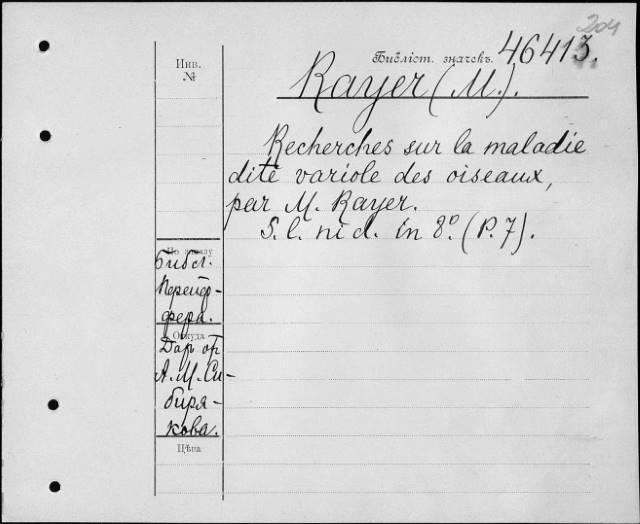 204
Инв.
№
Библіот. значекъ. 46413.
Rayer (M.).
Recherches sur la maladie
dite variole des oiseaux,
par M. Rayer.
S. l. ni d. in 8º. (P. 7).
По заказу
Библ.
Прейф-
фера.
Откуда
Даръ от
А. М. Си-
биря-
кова.
Цѣна